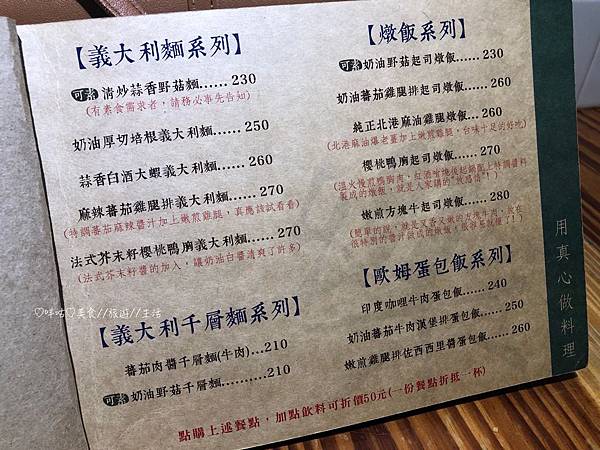 【義大利麵系列】
可素 清炒蒜香野菇麵......230
(有素食需求者，請務必事先告知)
奶油厚切培根義大利麵......250
蒜香白酒大蝦義大利麵......260
麻辣蕃茄雞腿排義大利麵....270
(特調蕃茄麻辣醬汁加上嫩煎雞腿，真應該試看看)
法式芥末籽櫻桃鴨胸義大利麵...270
(法式芥末籽醬的加入，讓奶油白醬清爽了許多)
【義大利千層麵系列】
蕃茄肉醬千層麵(牛肉)...210
可素 奶油野菇千層麵..........210
【燉飯系列】
可素 奶油野菇起司燉飯......230
奶油蕃茄雞腿排起司燉飯....260
純正北港麻油雞腿燉飯...260
(北港麻油爆老薑加上嫩煎雞腿，台味十足的好吃)
櫻桃鴨胸起司燉飯...270
嫩煎方塊牛起司燉飯...280
【歐姆蛋包飯系列】
印度咖哩牛肉蛋包飯......240
奶油蕃茄牛肉漢堡排蛋包飯...250
嫩煎雞腿排佐西西里醬蛋包飯...260
點購上述餐點，加點飲料可折價50元(一份餐點折抵一杯)
用真心做料理
♡咩咕♡美食//旅遊//生活